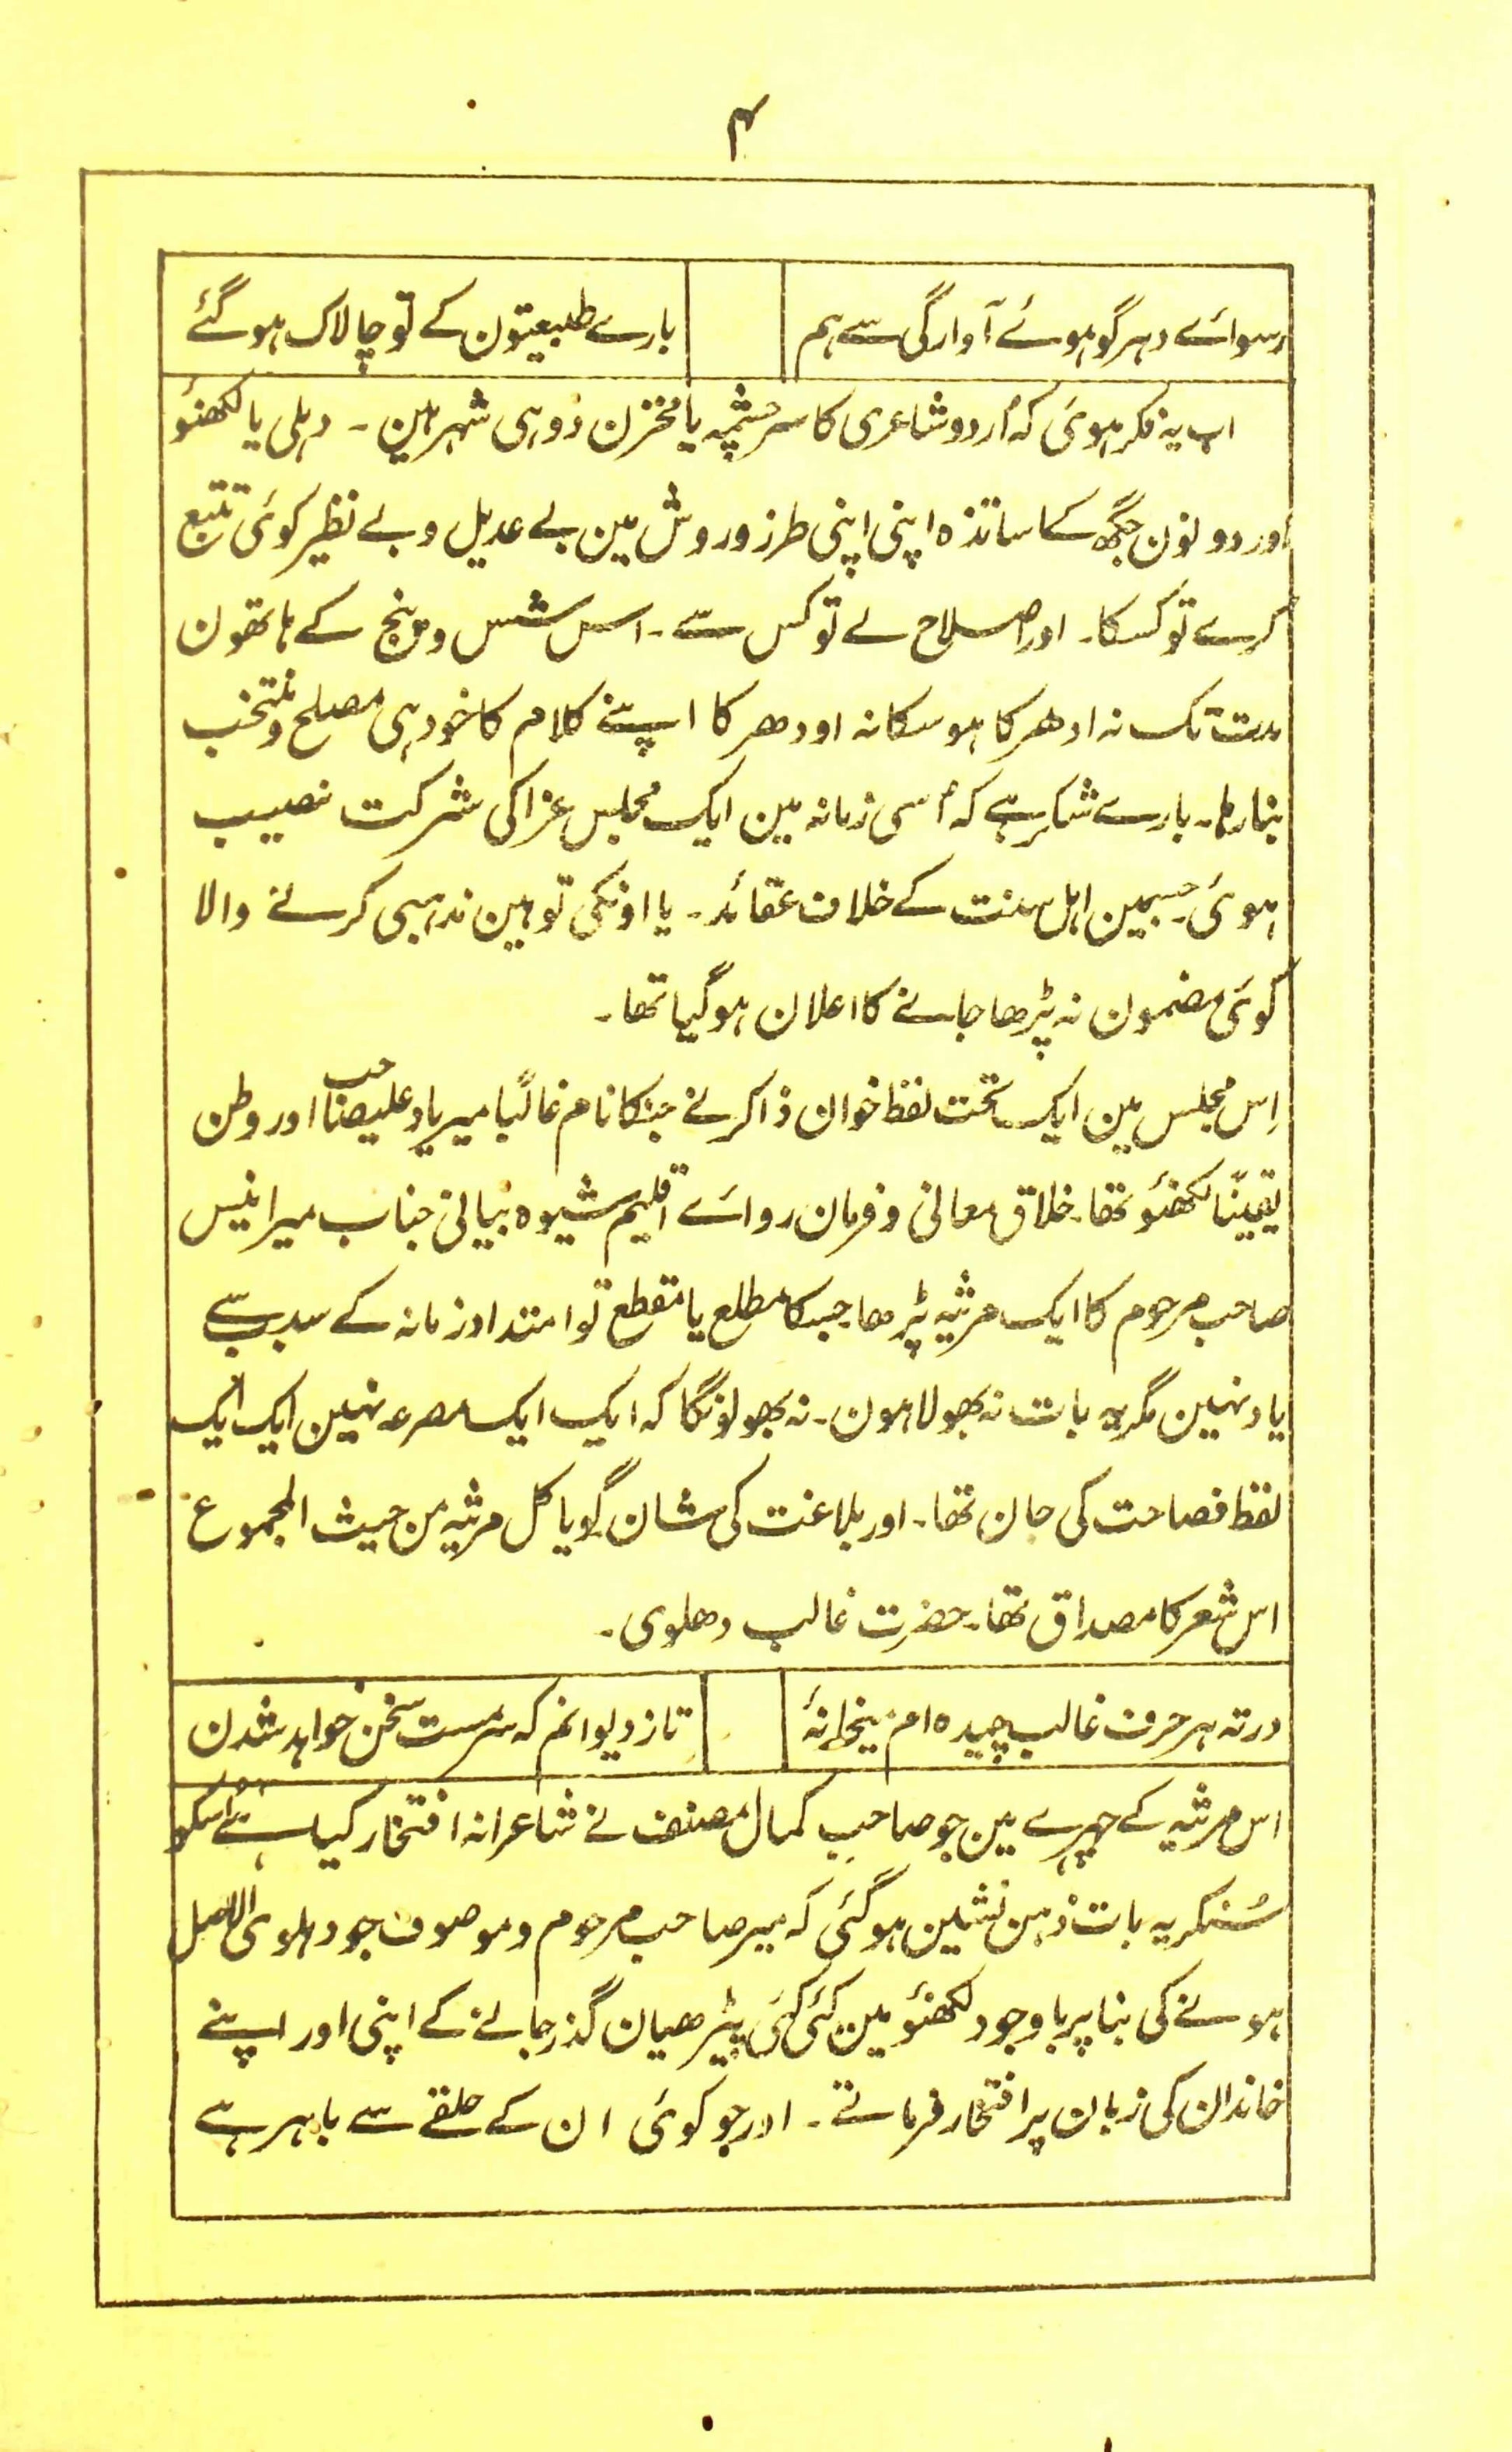 ۴
رسوائے دہر گو ہوئے آوارگی سے ہم بارے طبیعیتون کے تو چالاک ہو گئے
اب یہ فکر ہوئی کہ اُردو شاعری کا سرچشمہ یا مخزن دو ہی شہر ہین ۔ دہلی یا لکھنؤ
اور دونون جگھ کے اساتذہ اپنی اپنی طرز و روش مین بے عدیل و بے نظیر کوئی تتبع
کرے تو کسکا ۔ اور اصلاح لے تو کس سے ۔ اس شش و پنج کے ہاتھون
مدت تک نہ ادھر کا ہو سکا نہ اودھر کا اپنے کلام کا خود ہی مصلح و منتخب
بنا رہا ۔ بارے شکر ہے کہ اُسی زمانہ مین ایک مجلس عزا کی شرکت نصیب
ہوئی جسمین اہل سنت کے خلاف عقائد ۔ یا اونکی توہین مذہبی کرنے والا
کوئی مضمون نہ پڑھا جانے کا اعلان ہو گیا تھا ۔
اِس مجلس مین ایک تحت لفظ خوان ذاکر نے جنکا نام غالبًا میر یاد علیصاحب تھا اور وطن
یقینًا لکھنؤ تھا ۔ خلاق معانی و فرمان روائے اقلیم شیوہ بیانی جناب میر انیس
صاحب مرحوم کا ایک مرثیہ پڑھا جسکا مطلع یا مقطع تو امتداد زمانہ کے سبب سے
یاد نہین مگر یہ بات نہ بھولا ہون ۔ نہ بھولونگا کہ ایک ایک مصرعہ نہین ایک ایک
لفظ فصاحت کی جان تھا ۔ اور بلاغت کی شان گویا کل مرثیہ من حیث المجموع
اس شعر کا مصداق تھا ۔ حضرت غالب دھلوی ۔
در تہ ہر حرف غالب چیدہ ام میخانۂ تا ز دیوانم کہ سرمست سخن خواہد شدن
اس مرثیہ کے چہرے مین جو صاحبِ کمال مصنف نے شاعرانہ افتخار کیا ہے اُسکو
سُنکر یہ بات ذہن نشین ہو گئی کہ میر صاحب مرحوم و موصوف جو دہلوی الاصل
ہونے کی بنا پر باوجود لکھنؤ مین کئی کئی پیڑھیان گذر جانے کے اپنی اور اپنے
خاندان کی زبان پر افتخار فرماتے ۔ اور جو کوئی ان کے حلقے سے باہر ہے